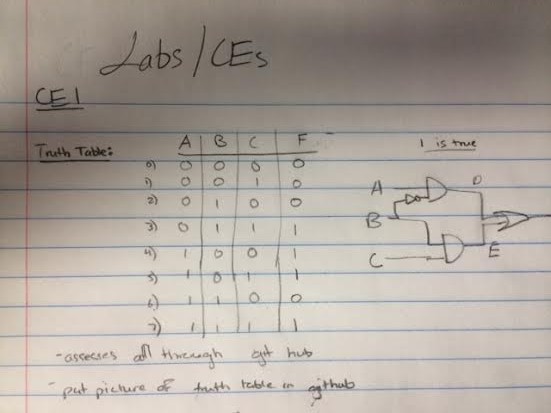 Labs/CEs
CE1
Truth Table: A B C F
0) 0 0 0 0
1) 0 0 1 0
2) 0 1 0 0
3) 0 1 1 1
4) 1 0 0 1
5) 1 0 1 1
6) 1 1 0 0
7) 1 1 1 1
1 is true
A D
B
C E
- assecses all through git hub
- put picture of truth table on github